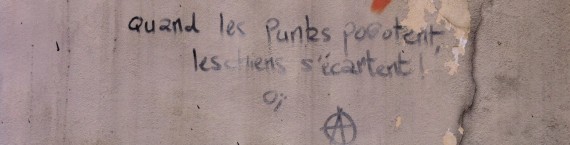 Quand les Punks popotent,
les chiens s'écartent !
Oï